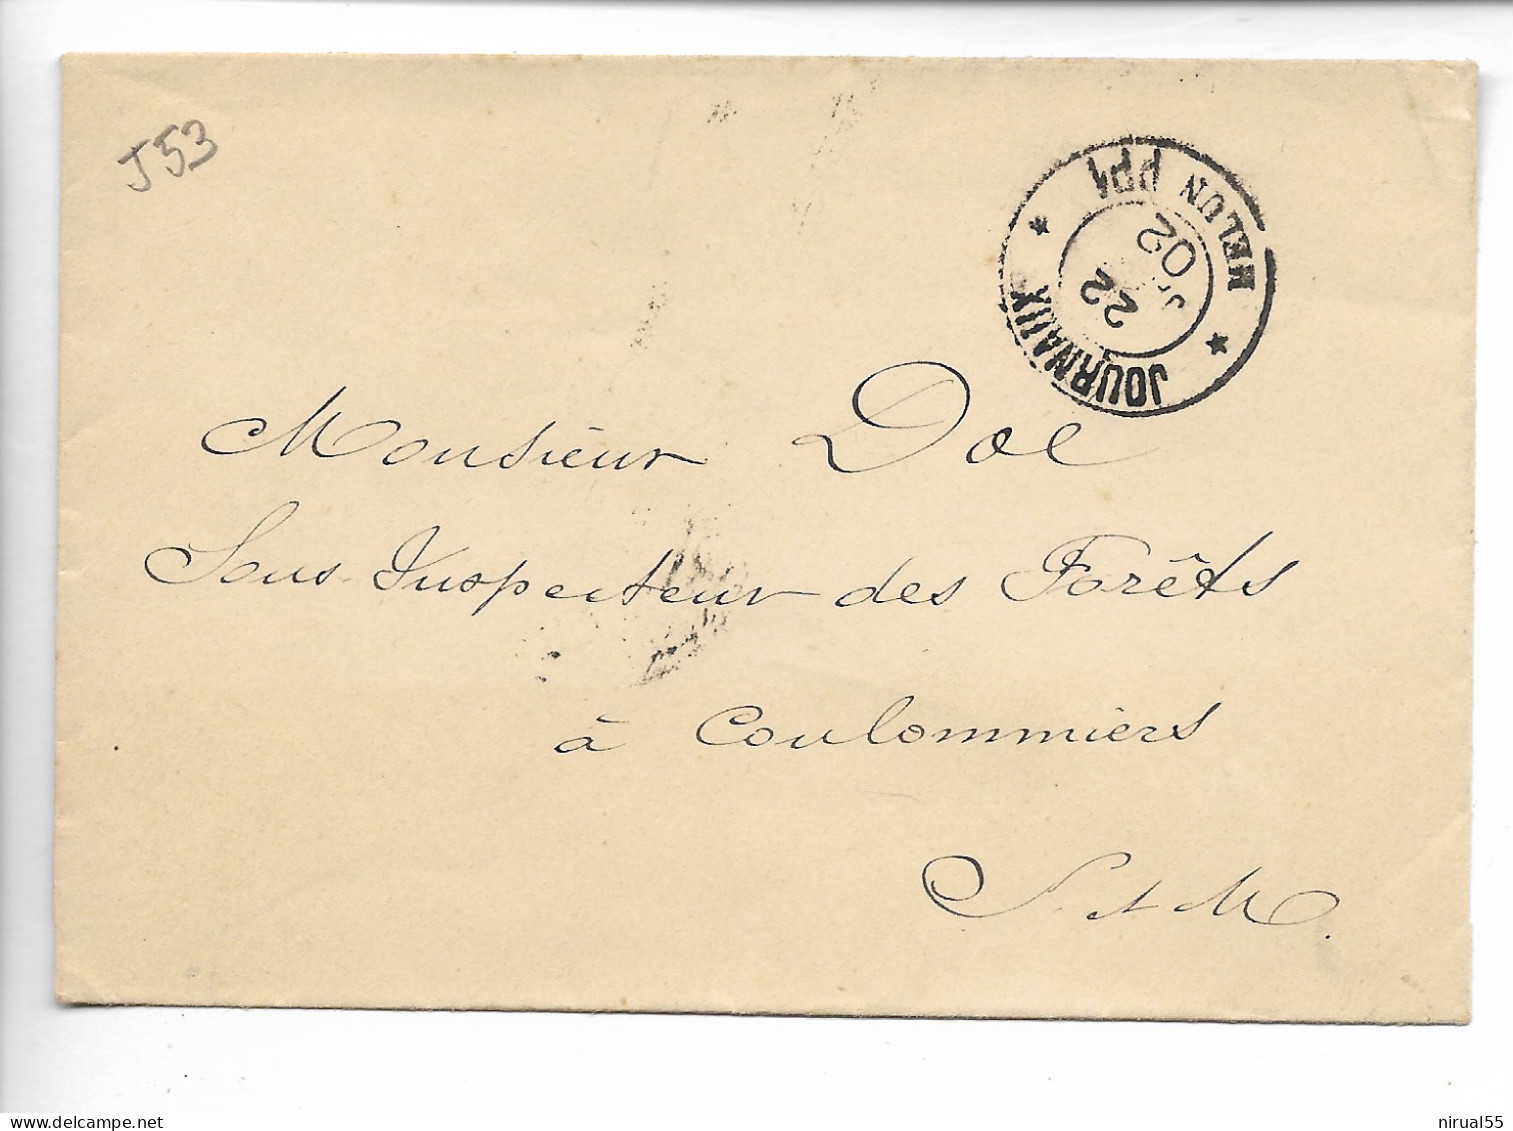 J53
JOURNAUX
MELUN PP1
22
02
Monsieur Doe
Sous-Inspecteur des Forêts
à Coulommiers
S. et M.
delcampe.net
nirual55